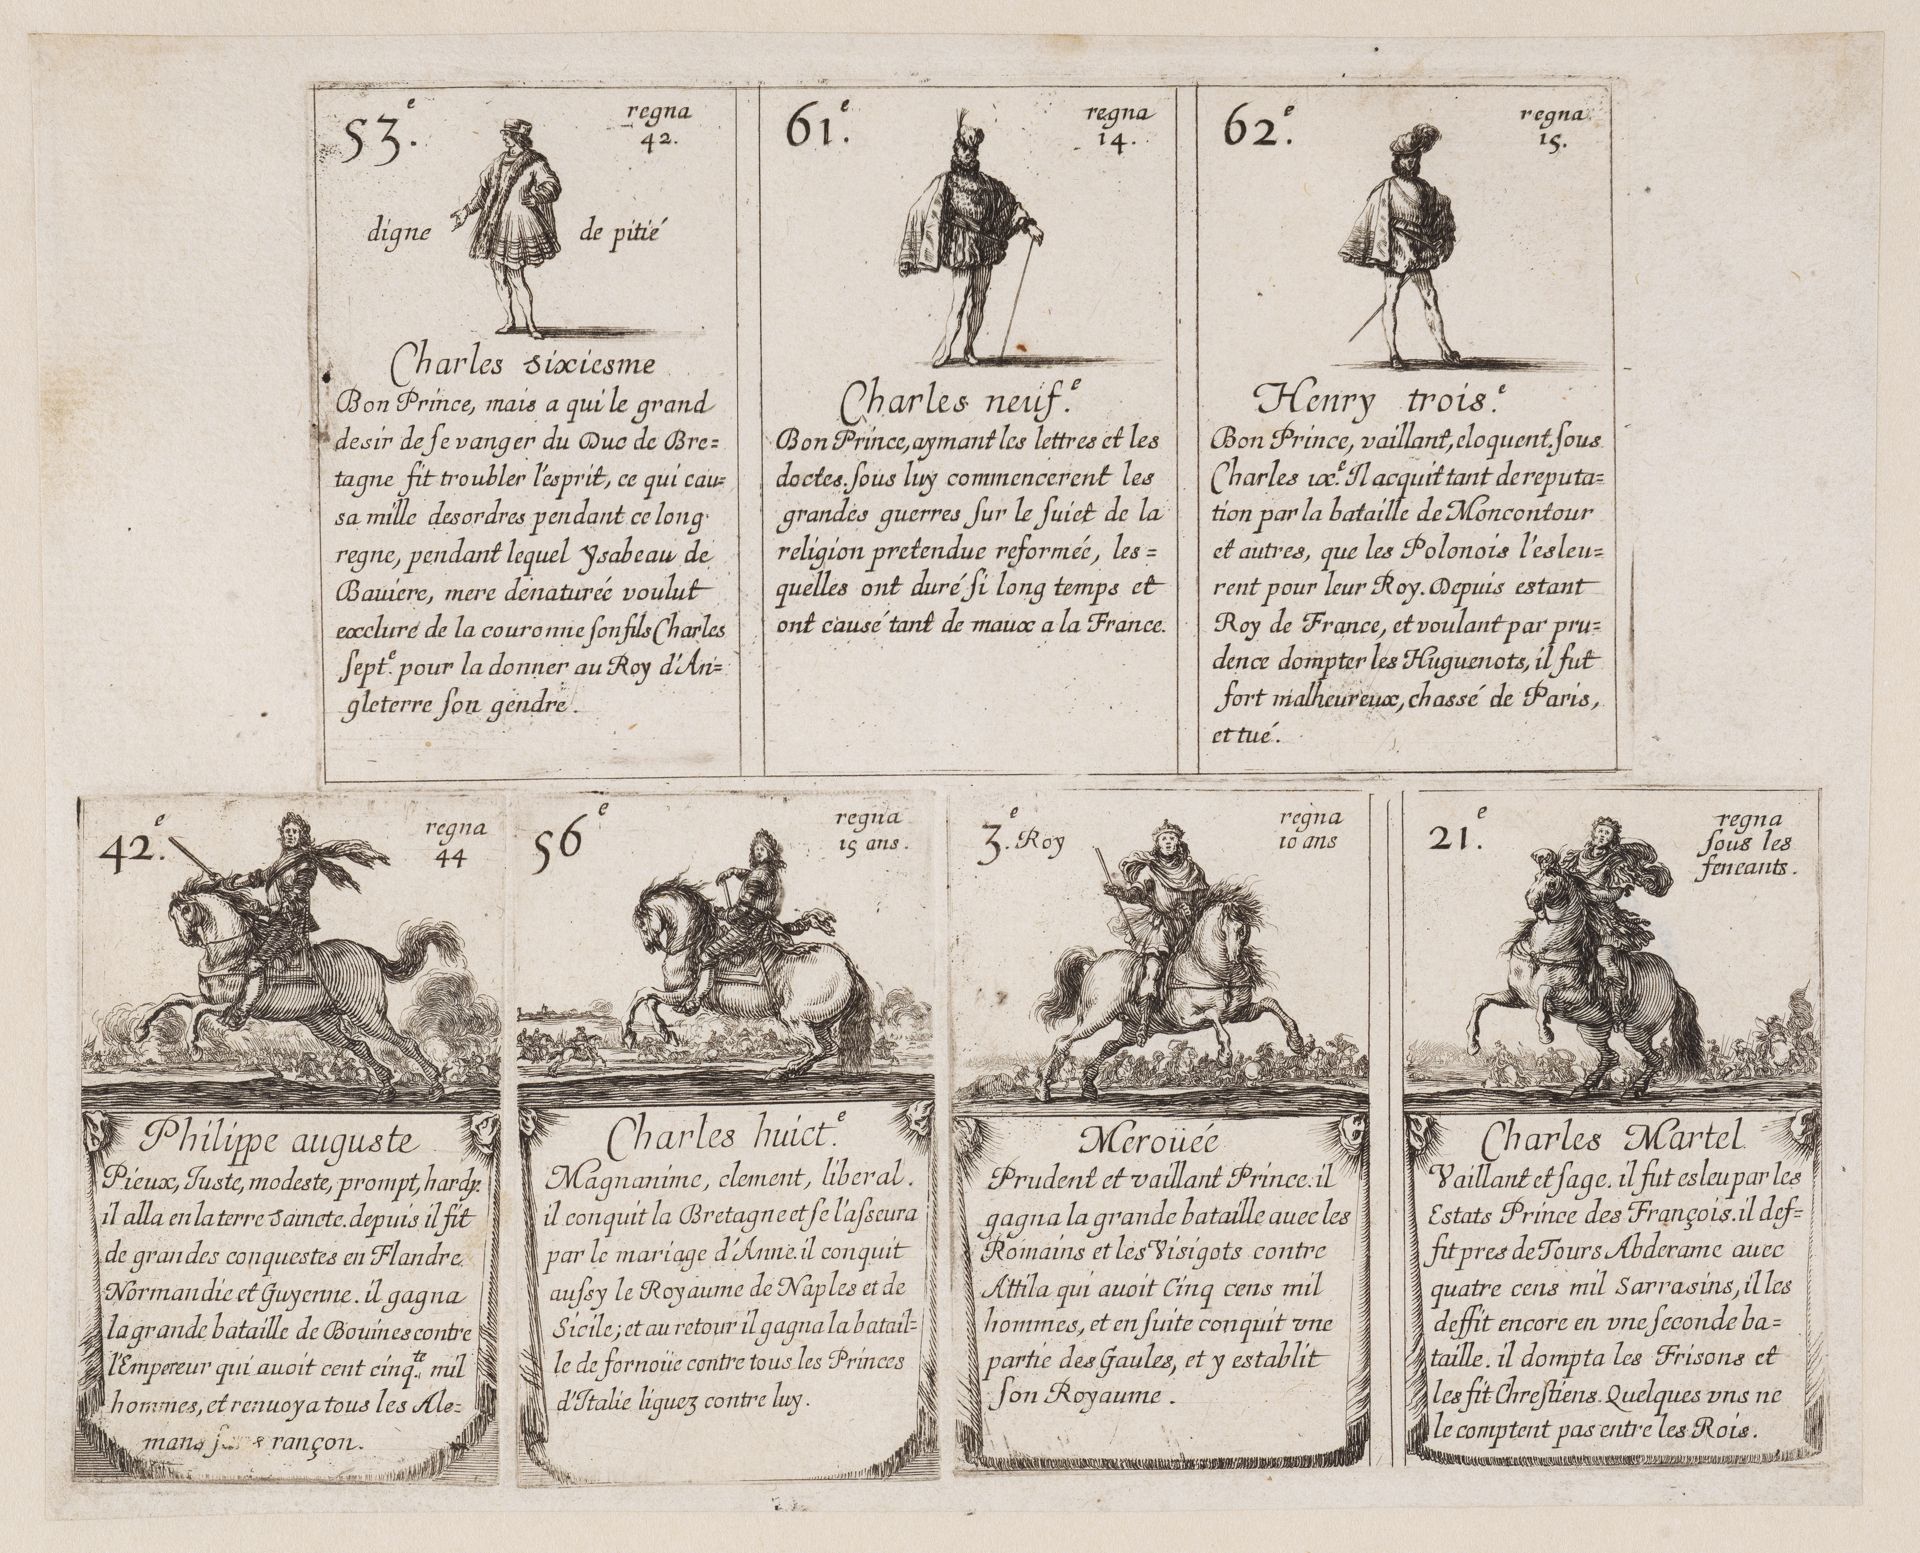 53.e
regna
42.
digne de pitié
Charles sixiesme
Bon Prince, mais a qui le grand
desir de se vanger du Duc de Bre=
tagne fit troubler l'esprit, ce qui cau=
sa mille desordres pendant ce long
regne, pendant lequel Ysabeau de
Baviere, mere denaturée voulut
exclure de la couronne son fils Charles
sept.e pour la donner au Roy d'An=
gleterre son gendre.
61.e
regna
14.
Charles neuf.e
Bon Prince, aymant les lettres et les
doctes. sous luy commencerent les
grandes guerres sur le suiet de la
religion pretendue reformée, les=
quelles ont duré si long temps et
ont causé tant de maux a la France.
62.e
regna
15.
Henry trois.e
Bon Prince, vaillant, eloquent. sous
Charles ix.e Il acquit tant de reputa=
tion par la bataille de Moncontour
et autres, que les Polonois l'esleu=
rent pour leur Roy. Depuis estant
Roy de France, et voulant par pru=
dence dompter les Huguenots, il fut
fort malheureux, chassé de Paris,
et tué.
42.e
regna
44
Philippe auguste
Pieux, Iuste, modeste, prompt, hardy.
il alla en la terre saincte. depuis il fit
de grandes conquestes en Flandre
Normandie et Guyenne. il gagna
la grande bataille de Bouines contre
l'Empereur qui auoit cent cinq.te mil
hommes, et renuoya tous les Ale=
mans rançon.
56e
regna
15 ans.
Charles huict.e
Magnanime, clement, liberal.
il conquit la Bretagne et se l'asseura
par le mariage d'Anne. il conquit
aussy le Royaume de Naples et de
Sicile; et au retour il gagna la batail=
le de fornoüe contre tous les Princes
d'Italie liguez contre luy.
3.e Roy
regna
10 ans
Meroüée
Prudent et vaillant Prince. il
gagna la grande bataille auec les
Romains et les Visigots contre
Attila qui auoit Cinq cens mil
hommes, et en suite conquit vne
partie des Gaules, et y establit
son Royaume.
21.e
regna
sous les
feneants.
Charles Martel
Vaillant et sage. il fut esleu par les
Estats Prince des François. il def=
fit pres de Tours Abderame auec
quatre cens mil Sarrasins, il les
deffit encore en vne seconde ba=
taille. il dompta les Frisons et
les fit Chrestiens. Quelques vns ne
le comptent pas entre les Rois.